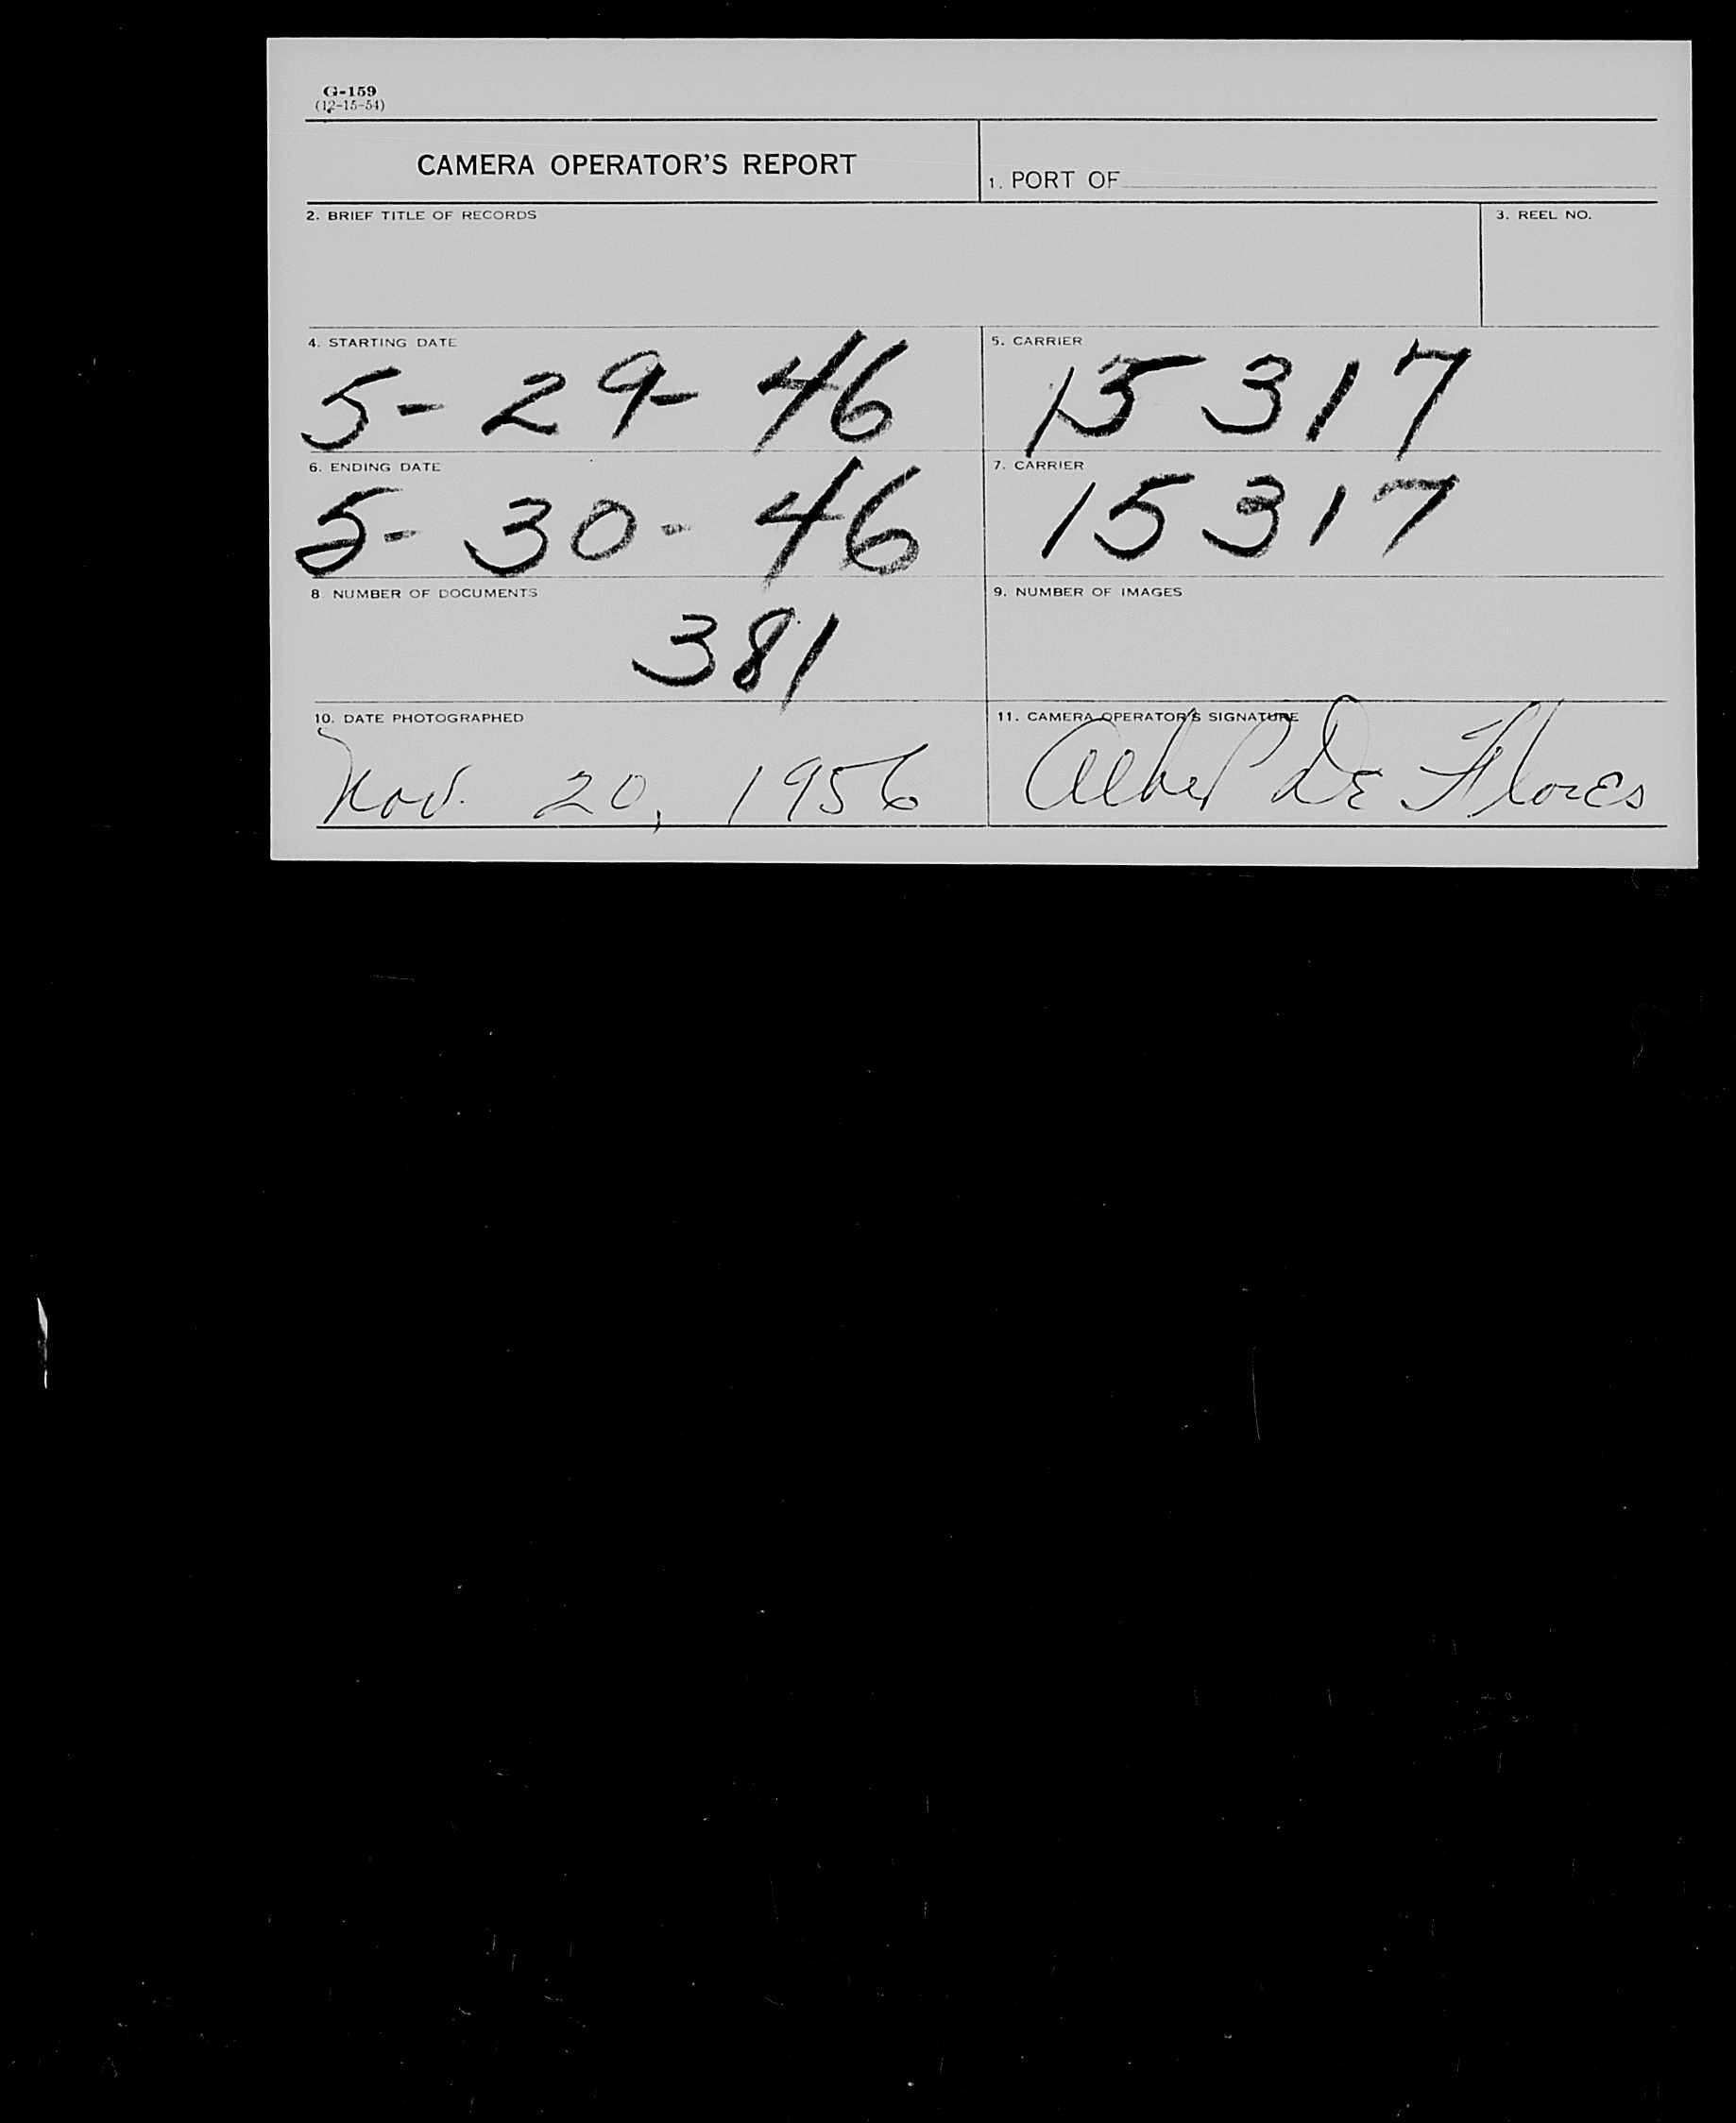 G-159
(12-15-54)
CAMERA OPERATOR'S REPORT
1. PORT OF
2. BRIEF TITLE OF RECORDS
3. REEL NO.
4. STARTING DATE
5-29-46
5. CARRIER
15317
6. ENDING DATE
5-30-46
7. CARRIER
15317
8. NUMBER OF DOCUMENTS
381
9. NUMBER OF IMAGES
10. DATE PHOTOGRAPHED
Nov. 20, 1956
11. CAMERA OPERATOR'S SIGNATURE
De Flores